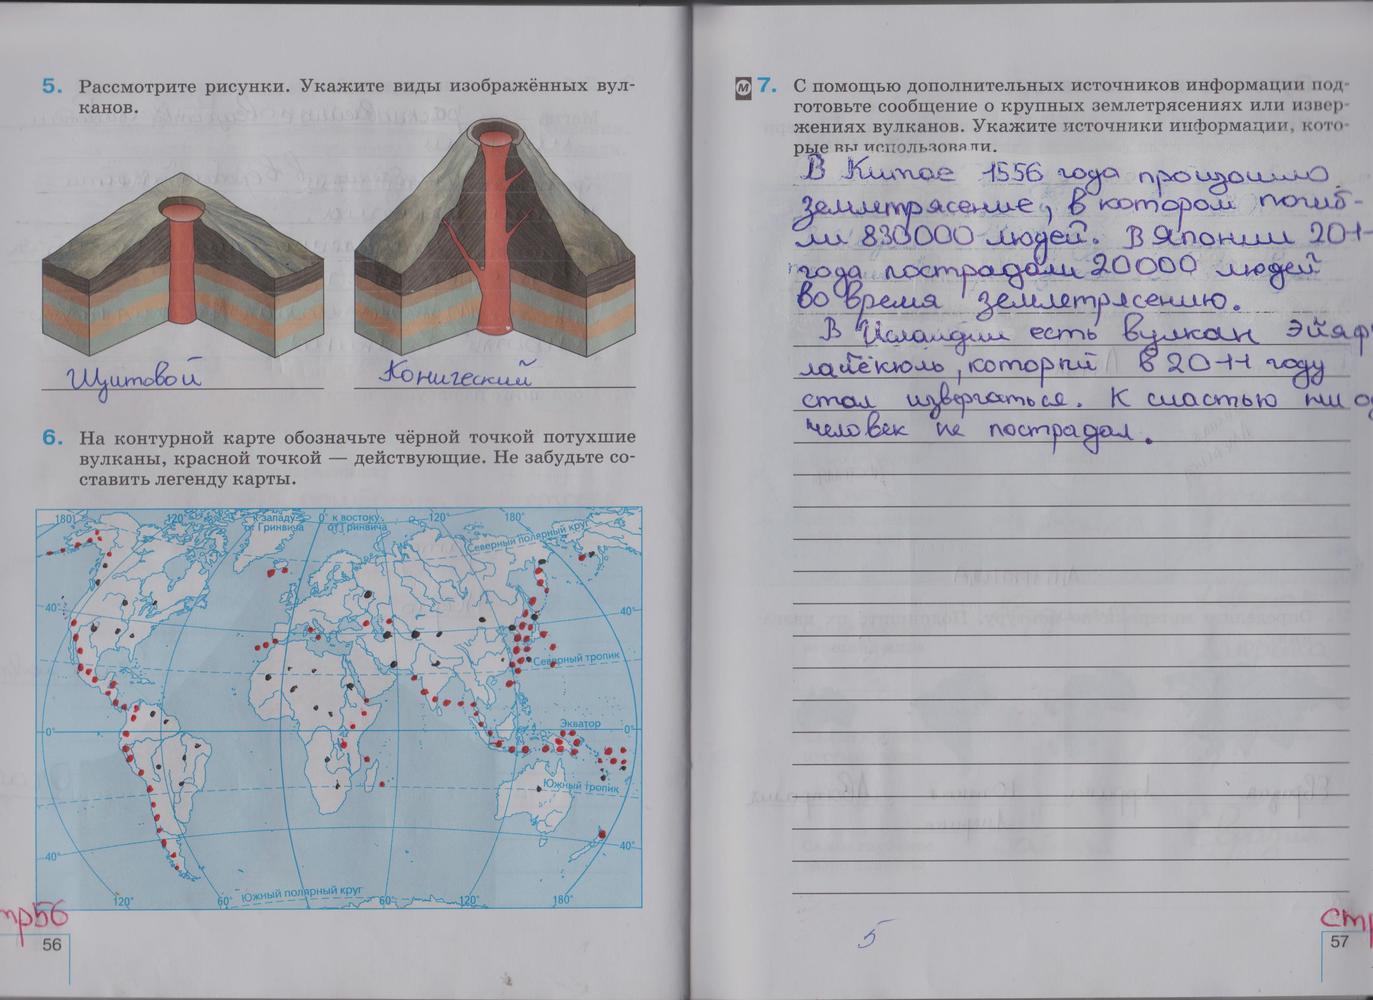 5. Рассмотрите рисунки. Укажите виды изображённых вул-
канов.
Щитовой
Конический
6. На контурной карте обозначьте чёрной точкой потухшие
вулканы, красной точкой — действующие. Не забудьте со-
ставить легенду карты.
180°
120°
к западу
от Гринвича
0°
к востоку
от Гринвича
120°
180°
Северный полярный круг
40°
40°
Северный тропик
Экватор
0°
0°
Южный тропик
40°
40°
Южный полярный круг
120°
60°
60°
120°
180°
тр56
56
М 7. С помощью дополнительных источников информации под-
готовьте сообщение о крупных землетрясениях или извер-
жениях вулканов. Укажите источники информации, кото-
рые вы использовали.
В Китае 1556 года произошло
землетрясение, в котором погиб-
ли 830000 людей. В Японии 2011
года пострадали 20000 людей
во время землетрясению.
В Исландии есть вулкан Эйяф
лайекюль, который в 2011 году
стал извергаться. К счастью ни од
человек не пострадал.
5
стр
57